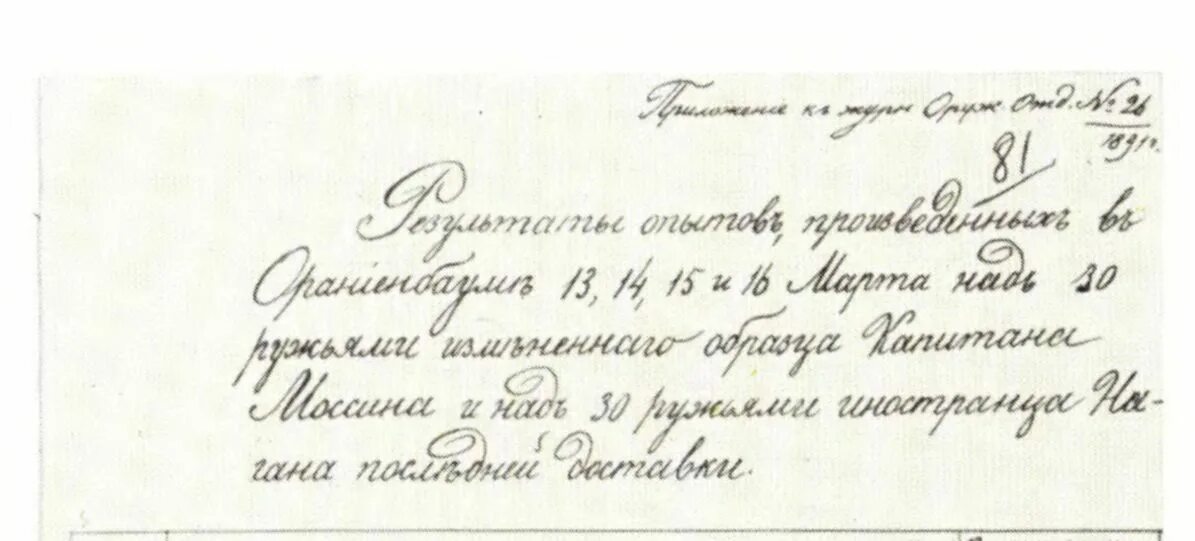 Приложеніе къ журн Оруж. Отд. № 26
1891 г.
81
Результаты опытовъ, произведенныхъ въ
Ораніенбаумѣ 13, 14, 15 и 16 Марта надъ 30
ружьями измѣненнаго образца Капитана
Моссина и надъ 30 ружьями иностранца На-
гана послѣдней доставки.